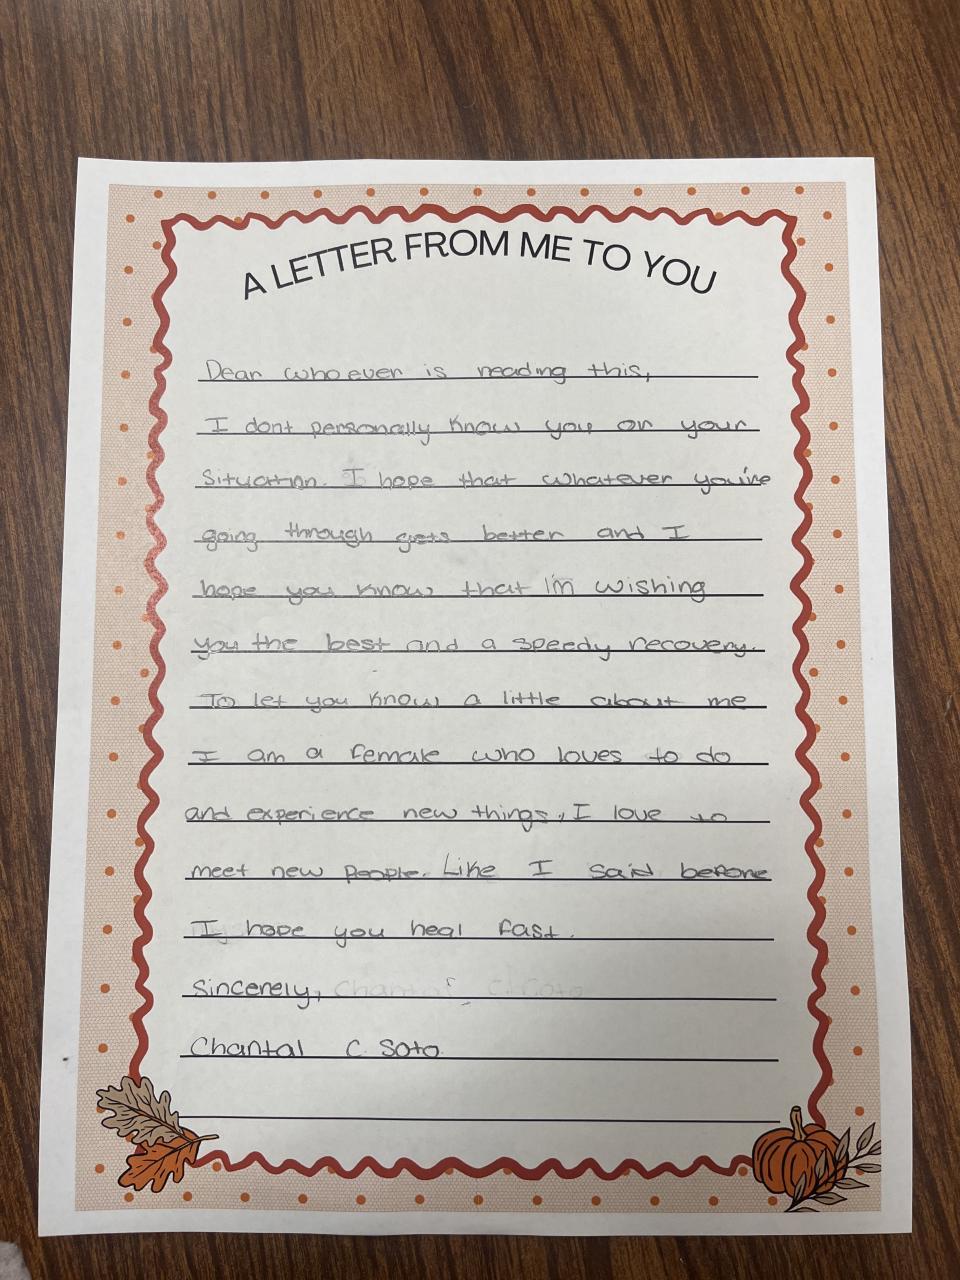 A LETTER FROM ME TO YOU
Dear whoever is reading this,
I dont personally know you or your
situation. I hope that whatever you're
going through gets better and I
hope you know that I'm wishing
you the best and a speedy recovery.
To let you know a little about me
I am a female who loves to do
and experience new things, I love to
meet new people. Like I said before
I hope you heal fast.
Sincerely, Chantal C. Soto
Chantal C. Soto